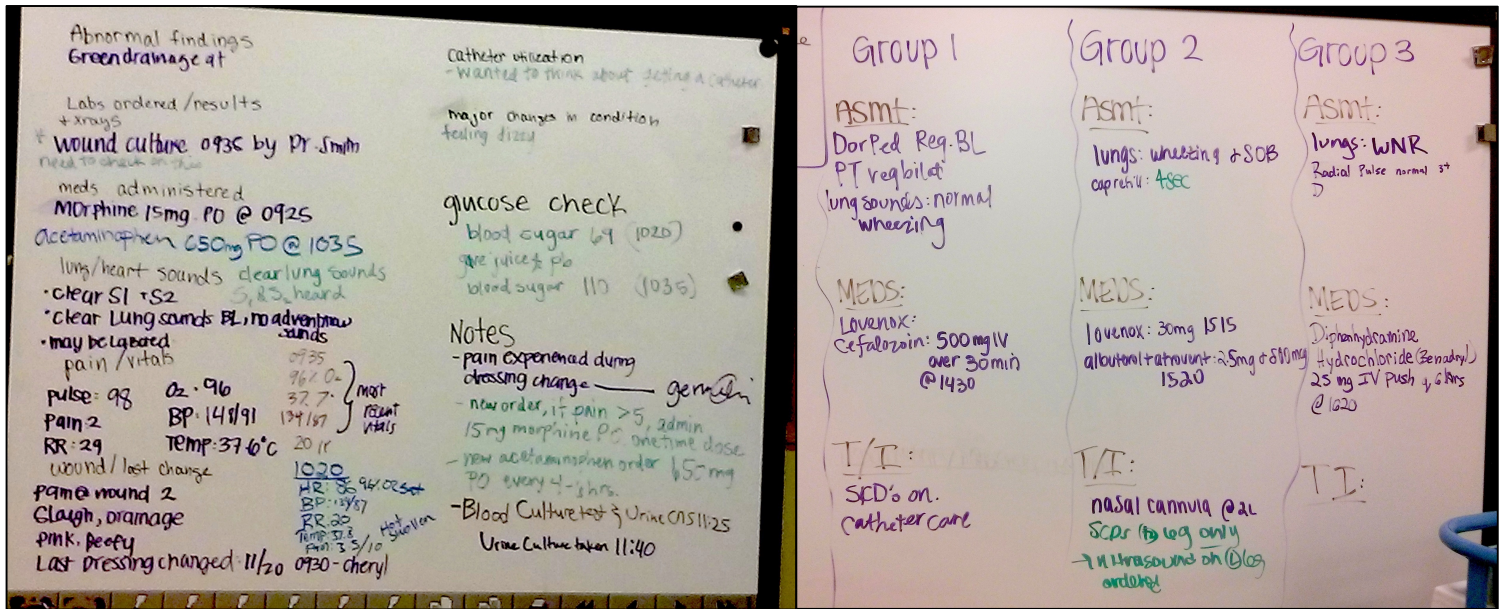 Abnormal findings
Green drainage at
Labs ordered/results
+ xrays
* wound culture 0935 by Dr. Smith
need to check on this
meds administered
Morphine 15mg PO @ 0925
acetaminophen 650mg PO @ 1035
lung/heart sounds clear lung sounds
S1 & S2 heard
• clear S1 + S2
• clear Lung sounds BL, no
sounds
• may be labored
pain/vitals
pulse: 98 O2 · 96
Pain: 2 BP: 148/91
RR: 29 Temp: 37.6°C
0935
96% O2
37.7
134/87
20 rr
most
recent
vitals
wound/last change
pain @ wound 2
Slough, Drainage
pink, Beefy
Last Dressing changed · 11/20 0930 - cheryl
1020
HR: 86 96% O2 sat
BP: 134/87
RR: 20
Temp: 37.8
Pain: 3.5/10
Hot
swollen
Catheter utilization
- wanted to think about getting a catheter
major changes in condition
feeling dizzy
glucose check
blood sugar 69 (1020)
give juice & pb
blood sugar 110 (1035)
Notes
- pain experienced during
dressing change
- new order, if pain >5, admin
15mg morphine PO, onetime dose
- new acetaminophen order 650mg
PO every 4-6hrs.
- Blood Culture test & Urine C&S 11:25
Urine Culture taken 11:40
Group 1
Asmt:
Dor Ped Reg. BL
PT reg bilat
lung sounds: normal
wheezing
MEDS:
Lovenox:
Cefalozoin: 500mg IV
over 30min
@1430
T/I:
SCD's on.
catheter care
Group 2
Asmt:
lungs: wheezing & SOB
cap refill: 4sec
MEDS:
lovenox: 30mg 1515
albuterol + atrovent: 2.5mg + 500mg
1520
T/I:
nasal cannula @2L
SCDs (R) leg only
→ ultrasound on (L) leg
ordered
Group 3
Asmt:
lungs: WNR
Radial Pulse normal 3+
D
MEDS:
Diphenhydramine
Hydrochloride (Benadryl)
25 mg IV push q 6hrs
@ 1620
TI: